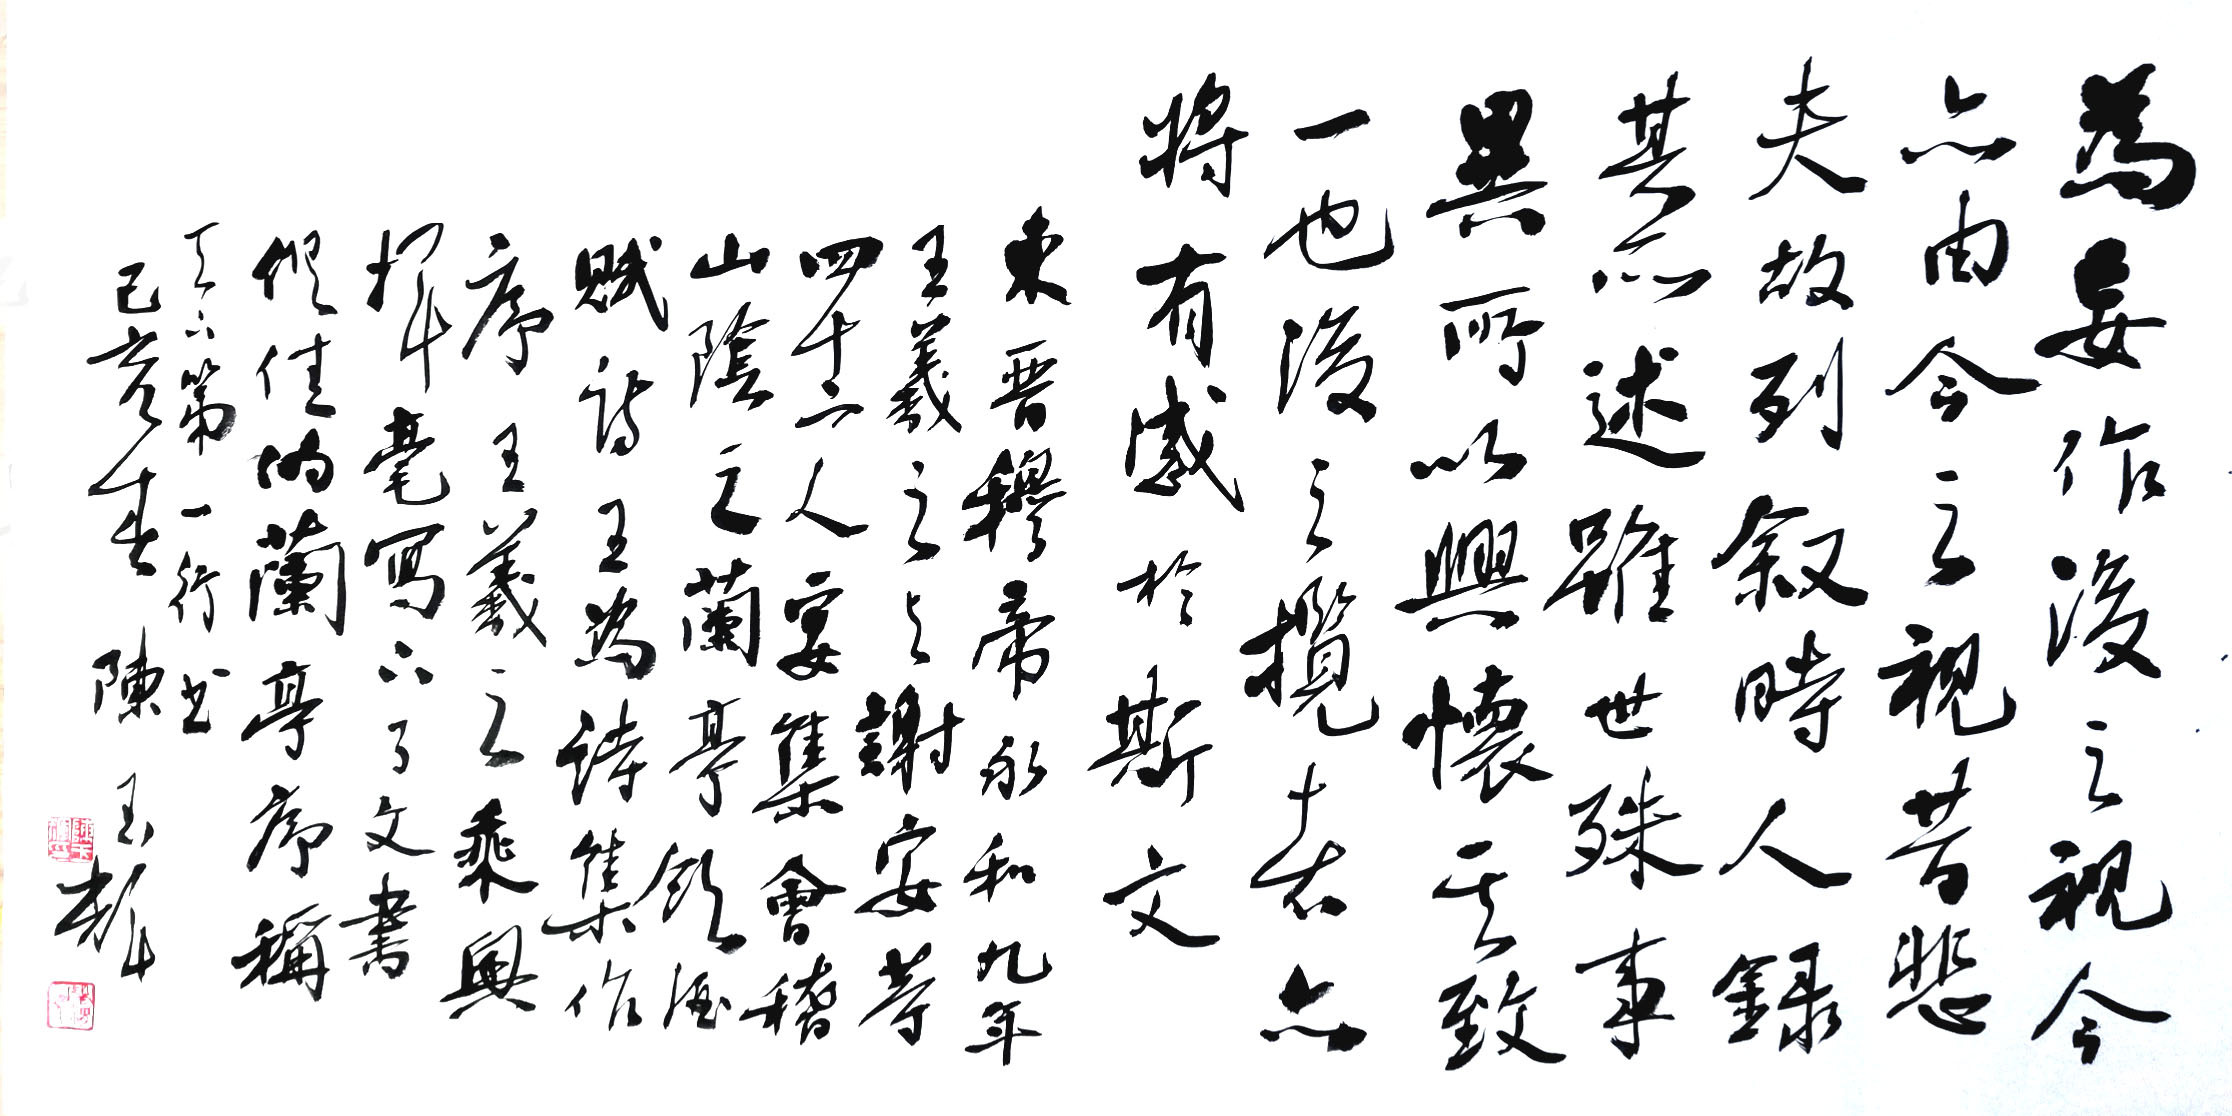 為妄作後之視今
亦由今之視昔悲
夫故列叙時人錄
其所述雖世殊事
異所以興懷其致
一也後之攬者亦
將有感於斯文
東晉穆帝永和九年
王羲之与謝安等
四十二人宴集會稽
山陰之蘭亭飲酒
賦詩王為詩集作
序王羲之乘興
揮毫寫下了文書
俱佳的蘭亭序稱
天下第一行书
己亥春陳玉輝